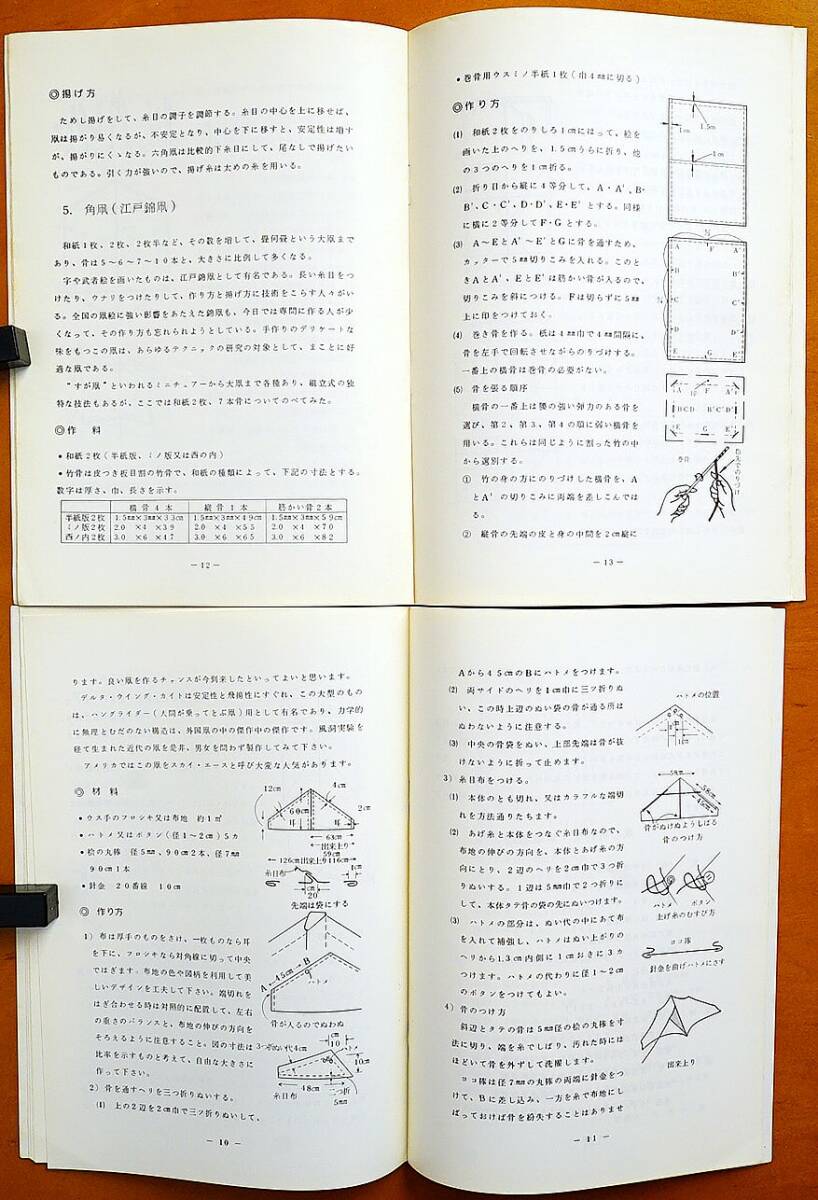 ◎揚げ方
ためし揚げをして、糸目の調子を調節する。糸目の中心を上に移せば、
凧は揚がり易くなるが、不安定となり、中心を下に移すと、安定性は増す
が、揚がりにくゝなる。六角凧は比較的下糸目にして、尾なしで揚げたい
ものである。引く力が強いので、揚げ糸は太めの糸を用いる。
5. 角凧（江戸錦凧）
和紙1枚、2枚、2枚半など、その数を増して、畳何畳という大凧まで
あり、骨は5〜6〜7〜10本と、大きさに比例して多くなる。
字や武者絵を画いたものは、江戸錦凧として有名である。長い糸目をつ
けたり、ウナリをつけたりして、作り方と揚げ方に技術をこらす人々がい
る。全国の凧絵に強い影響をあたえた錦凧も、今日では専門に作る人が少
くなって、その作り方も忘れられようとしている。手作りのデリケートな
味をもつこの凧は、あらゆるテクニックの研究の対象として、まことに好
適な凧である。
"すが凧"といわれるミニチュアーから大凧まで各種あり、組立式の独
特な技法もあるが、ここでは和紙2枚、7本骨についてのべてみた。
◎作 料
・和紙2枚（半紙版、ミノ版又は西の内）
・竹骨は皮つき板目割の竹骨で、和紙の種類によって、下記の寸法とする。
数字は厚さ、巾、長さを示す。
横骨4本 縦骨1本 筋かい骨2本
半紙版2枚 1.5㎜×3㎜×33㎝ 1.5㎜×3㎜×49㎝ 1.5㎜×3㎜×59㎝
ミノ版2枚 2.0 ×4 ×39 2.0 ×4 ×55 2.0 ×4 ×70
西ノ内2枚 3.0 ×6 ×47 3.0 ×6 ×65 3.0 ×6 ×82
－12－
・巻骨用ウスミノ半紙1枚（巾4㎜に切る）
◎作り方
(1) 和紙2枚をのりしろ1㎝にはって、絵を
画いた上のへりを、1.5㎝うらに折り、他
の3つのへりを1㎝折る。
(2) 折り目から縦に4等分して、A・A'、B・
B'、C・C'、D・D'、E・E'とする。同様
に横に2等分してF・Gとする。
(3) A〜EとA'〜E'とGに骨を通すため、
カッターで5㎜切りこみを入れる。このと
きAとA'、EとE'は筋かい骨が入るので、
切りこみを斜につける。Fは切らずに5㎜
上に印をつけておく。
(4) 巻き骨を作る。紙は4㎜巾で4㎜間隔に、
骨を左手で回転させながらのりづけする。
一番上の横骨は巻骨の必要がない。
(5) 骨を張る順序
横骨の一番上は腰の強い弾力のある骨を
選び、第2、第3、第4の順に弱い横骨を
用いる。これらは同じように割った竹の中
から選別する。
① 竹の身の方にのりづけした横骨を、A
とA'の切りこみに両端を差しこんでは
る。
② 縦骨の先端の皮と身の中間を2㎝縦に
1㎝
1.5㎝
1㎝
A F A'
B B'
C C'
D D'
E G E'
A F A'
BCD B'C'D'
E G E'
巻骨
－13－
ります。良い凧を作るチャンスが今到来したといってよいと思います。
デルタ・ウイング・カイトは安定性と飛揚性にすぐれ、この大型のもの
は、ハングライダー（人間が乗ってとぶ凧）用として有名であり、力学的
に無理とむだのない構造は、外国凧の中の傑作中の傑作です。風洞実験を
経て生まれた近代の凧を是非、男女を問わず製作してみて下さい。
アメリカではこの凧をスカイ・エースと呼び大変な人気があります。
◎ 材 料
・ウス手のフロシキ又は布地 約1㎡
・ハトメ又はボタン（径1〜2㎝）5カ
・桧の丸棒 径5㎜、90㎝2本、径7㎜
90㎝1本
・針金 20番線 10㎝
◎ 作り方
1) 布は厚手のものをさけ、一枚ものなら耳
を下に、フロシキなら対角線に切って中央
ではぎます。布地の色や図柄を利用して美
しいデザインを工夫して下さい。端切れを
はぎ合わせる時は対照的に配置して、左右
の重さのバランスと、布地の伸びの方向を
そろえるように注意すること。図の寸法は
比率を示すものと考えて、自由な大きさに
作って下さい。
2) 骨を通すヘリを三つ折りぬいする。
(1) 上の2辺を2㎝巾で三ツ折りぬいして、
12㎝
4㎝
60㎝
耳
2㎝
63㎝
出来上り
59㎝
126㎝出来上り116㎝
糸目布
㎝
20
先端は袋にする
A 45㎝ B
ハトメ
骨が入るのでぬわぬ
3つ折ぬい代4㎝
㎝
10
10㎝
48㎝
糸目布
二つ折
5㎜
－10－
Aから45㎝のBにハトメをつけます。
(2) 両サイドのヘリを1㎝巾に三ツ折りぬ
い、この時上辺のぬい袋の骨が通る所は
ぬわないように注意する。
(3) 中央の骨袋をぬい、上部先端は骨が抜
けないように折って止めます。
3) 糸目布をつける。
(1) 本体のとも切れ、又はカラフルな端切
れを方法通りたちます。
(2) あげ糸と本体をつなぐ糸目布なので、
布地の伸びの方向を、本体とあげ糸の方
向にとり、2辺のヘリを2㎝巾で3つ折
りぬいする。1辺は5㎜巾で2つ折りに
して、本体タテ骨の袋の先にぬいつけます。
(3) ハトメの部分は、ぬい代の中にあて布
を入れて補強し、ハトメはぬい上がりの
ヘリから1.3㎝内側に1㎝おきに3カ
つけます。ハトメの代わりに径1〜2㎝
のボタンをつけてもよい。
4) 骨のつけ方
斜辺とタテの骨は5㎜径の桧の丸棒を寸
法に切り、端を糸でしばり、汚れた時には
ほどいて骨を外すして洗濯します。
ヨコ棒は径7㎜の丸棒の両端に針金をつ
けて、Bに差し込み、一方を糸で布地にし
ばっておけば骨を紛失することはありませ
ハトメの位置
1㎝
58㎝
58㎝
45㎝
骨がぬけぬようしばる
骨のつけ方
ハトメ ボタン
上げ糸のむすび方
ヨコ棒
針金を曲げハトメにさす
出来上り
－11－